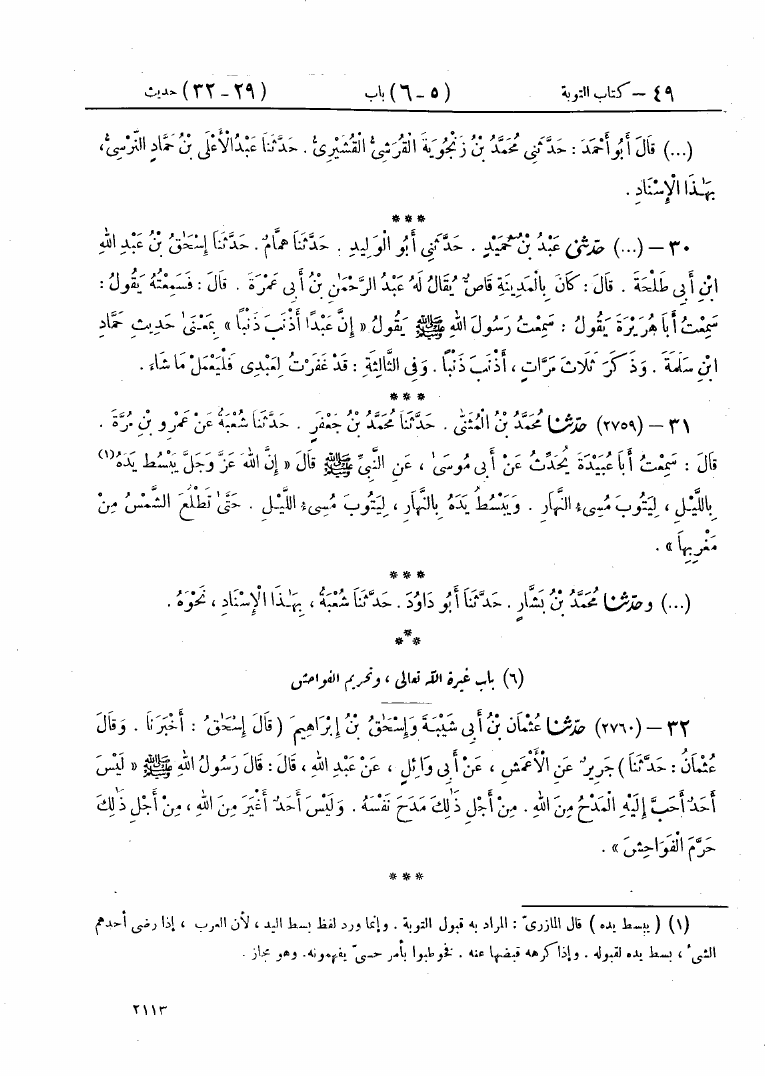 ٤٩ – كتاب التوبة (٥ – ٦) باب (٢٩ – ٣٢) حديث
(...) قَالَ أَبُو أَحْمَدَ : حَدَّثَنِي مُحَمَّدُ بْنُ زَنْجُويَةَ الْقُرَشِيُّ الْقُشَيْرِيُّ . حَدَّثَنَا عَبْدُ الْأَعْلَى بْنُ حَمَّادٍ النَّرْسِيُّ،
بِهَٰذَا الْإِسْنَادِ .
***
٣٠ – (...) حَدَّثَنِي عَبْدُ بْنُ حُمَيْدٍ . حَدَّثَنِي أَبُو الْوَلِيدِ . حَدَّثَنَا هَمَّامٌ . حَدَّثَنَا إِسْحَٰقُ بْنُ عَبْدِ اللهِ
ابْنِ أَبِي طَلْحَةَ . قَالَ : كَانَ بِالْمَدِينَةِ قَاصٌّ يُقَالُ لَهُ عَبْدُ الرَّحْمَٰنِ بْنُ أَبِي عَمْرَةَ . قَالَ : فَسَمِعْتُهُ يَقُولُ :
سَمِعْتُ أَبَا هُرَيْرَةَ يَقُولُ : سَمِعْتُ رَسُولَ اللهِ ﷺ يَقُولُ « إِنَّ عَبْدًا أَذْنَبَ ذَنْبًا » بِمَعْنَى حَدِيثِ حَمَّادِ
ابْنِ سَلَمَةَ . وَذَكَرَ ثَلَاثَ مَرَّاتٍ ، أَذْنَبَ ذَنْبًا . وَفِي الثَّالِثَةِ : قَدْ غَفَرْتُ لِعَبْدِي فَلْيَعْمَلْ مَا شَاءَ .
***
٣١ – (٢٧٥٩) حَدَّثَنَا مُحَمَّدُ بْنُ الْمُثَنَّى . حَدَّثَنَا مُحَمَّدُ بْنُ جَعْفَرٍ . حَدَّثَنَا شُعْبَةُ عَنْ عَمْرِو بْنِ مُرَّةَ .
قَالَ : سَمِعْتُ أَبَا عُبَيْدَةَ يُحَدِّثُ عَنْ أَبِي مُوسَىٰ ، عَنِ النَّبِيِّ ﷺ قَالَ « إِنَّ اللهَ عَزَّ وَجَلَّ يَبْسُطُ يَدَهُ(١)
بِاللَّيْلِ ، لِيَتُوبَ مُسِيءُ النَّهَارِ . وَيَبْسُطُ يَدَهُ بِالنَّهَارِ ، لِيَتُوبَ مُسِيءُ اللَّيْلِ . حَتَّىٰ تَطْلُعَ الشَّمْسُ مِنْ
مَغْرِبِهَا » .
***
(...) وحَدَّثَنَا مُحَمَّدُ بْنُ بَشَّارٍ . حَدَّثَنَا أَبُو دَاوُدَ . حَدَّثَنَا شُعْبَةُ ، بِهَٰذَا الْإِسْنَادِ ، نَحْوَهُ .
***
(٦) باب غيرة الله تعالى ، وتحريم الفواحش
٣٢ – (٢٧٦٠) حَدَّثَنَا عُثْمَانُ بْنُ أَبِي شَيْبَةَ وَإِسْحَٰقُ بْنُ إِبْرَاهِيمَ ( قَالَ إِسْحَٰقُ : أَخْبَرَنَا . وَقَالَ
عُثْمَانُ : حَدَّثَنَا ) جَرِيرٌ عَنِ الْأَعْمَشِ ، عَنْ أَبِي وَائِلٍ ، عَنْ عَبْدِ اللهِ ، قَالَ : قَالَ رَسُولُ اللهِ ﷺ « لَيْسَ
أَحَدٌ أَحَبَّ إِلَيْهِ الْمَدْحُ مِنَ اللهِ . مِنْ أَجْلِ ذَٰلِكَ مَدَحَ نَفْسَهُ . وَلَيْسَ أَحَدٌ أَغْيَرَ مِنَ اللهِ ، مِنْ أَجْلِ ذَٰلِكَ
حَرَّمَ الْفَوَاحِشَ » .
***
(١) ( يبسط يده ) قال المازريّ : المراد به قبول التوبة . وإنما ورد لفظ بسط اليد ، لأن العرب ، إذا رضى أحدهم
الشيء ، بسط يده لقبوله . وإذا كرهه قبضها عنه . فخوطبوا بأمر حسيّ يفهمونه . وهو مجاز .
٢١١٣